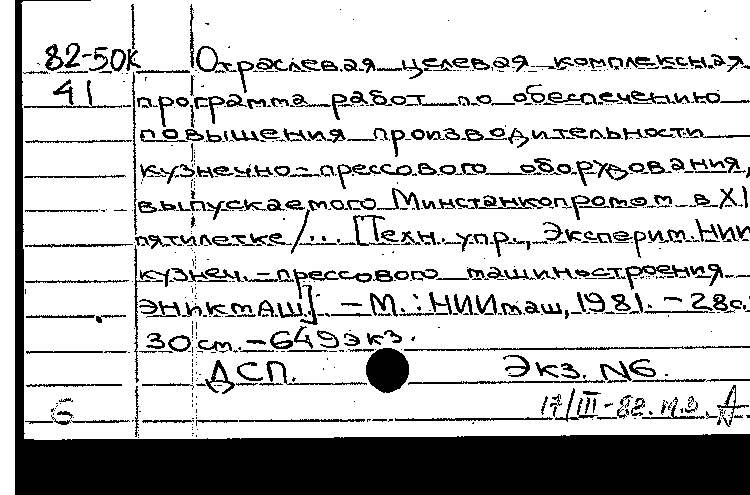 82-50к Отраслевая целевая комплексная
41 программа работ по обеспечению
повышения производительности
кузнечно-прессового оборудования,
выпускаемого Минстанкопромом в XI
пятилетке /... [Техн. упр., Эксперим. НИИ
кузнеч.-прессового машиностроения
ЭНИКмАШ]. - М.: НИИмаш, 1981. - 28с.
30 см. - 649 экз.
ДСП. Экз. N6.
6 17/III-82. м.з. Д.